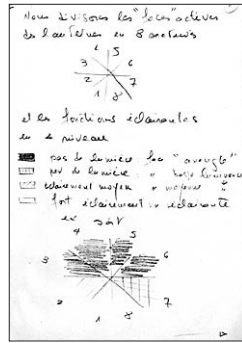 Nous divisons les "faces" actives
des lanternes en 8 secteurs
4 5
3 6
2 7
1 8
et les fonctions éclairantes
en 4 niveaux
pas de lumière face "aveugle"
peu de lumière " basse luminance
éclairement moyen " moyenne "
fort éclairement " éclairante
ex soit
4 5
3 6
2 7
1 8